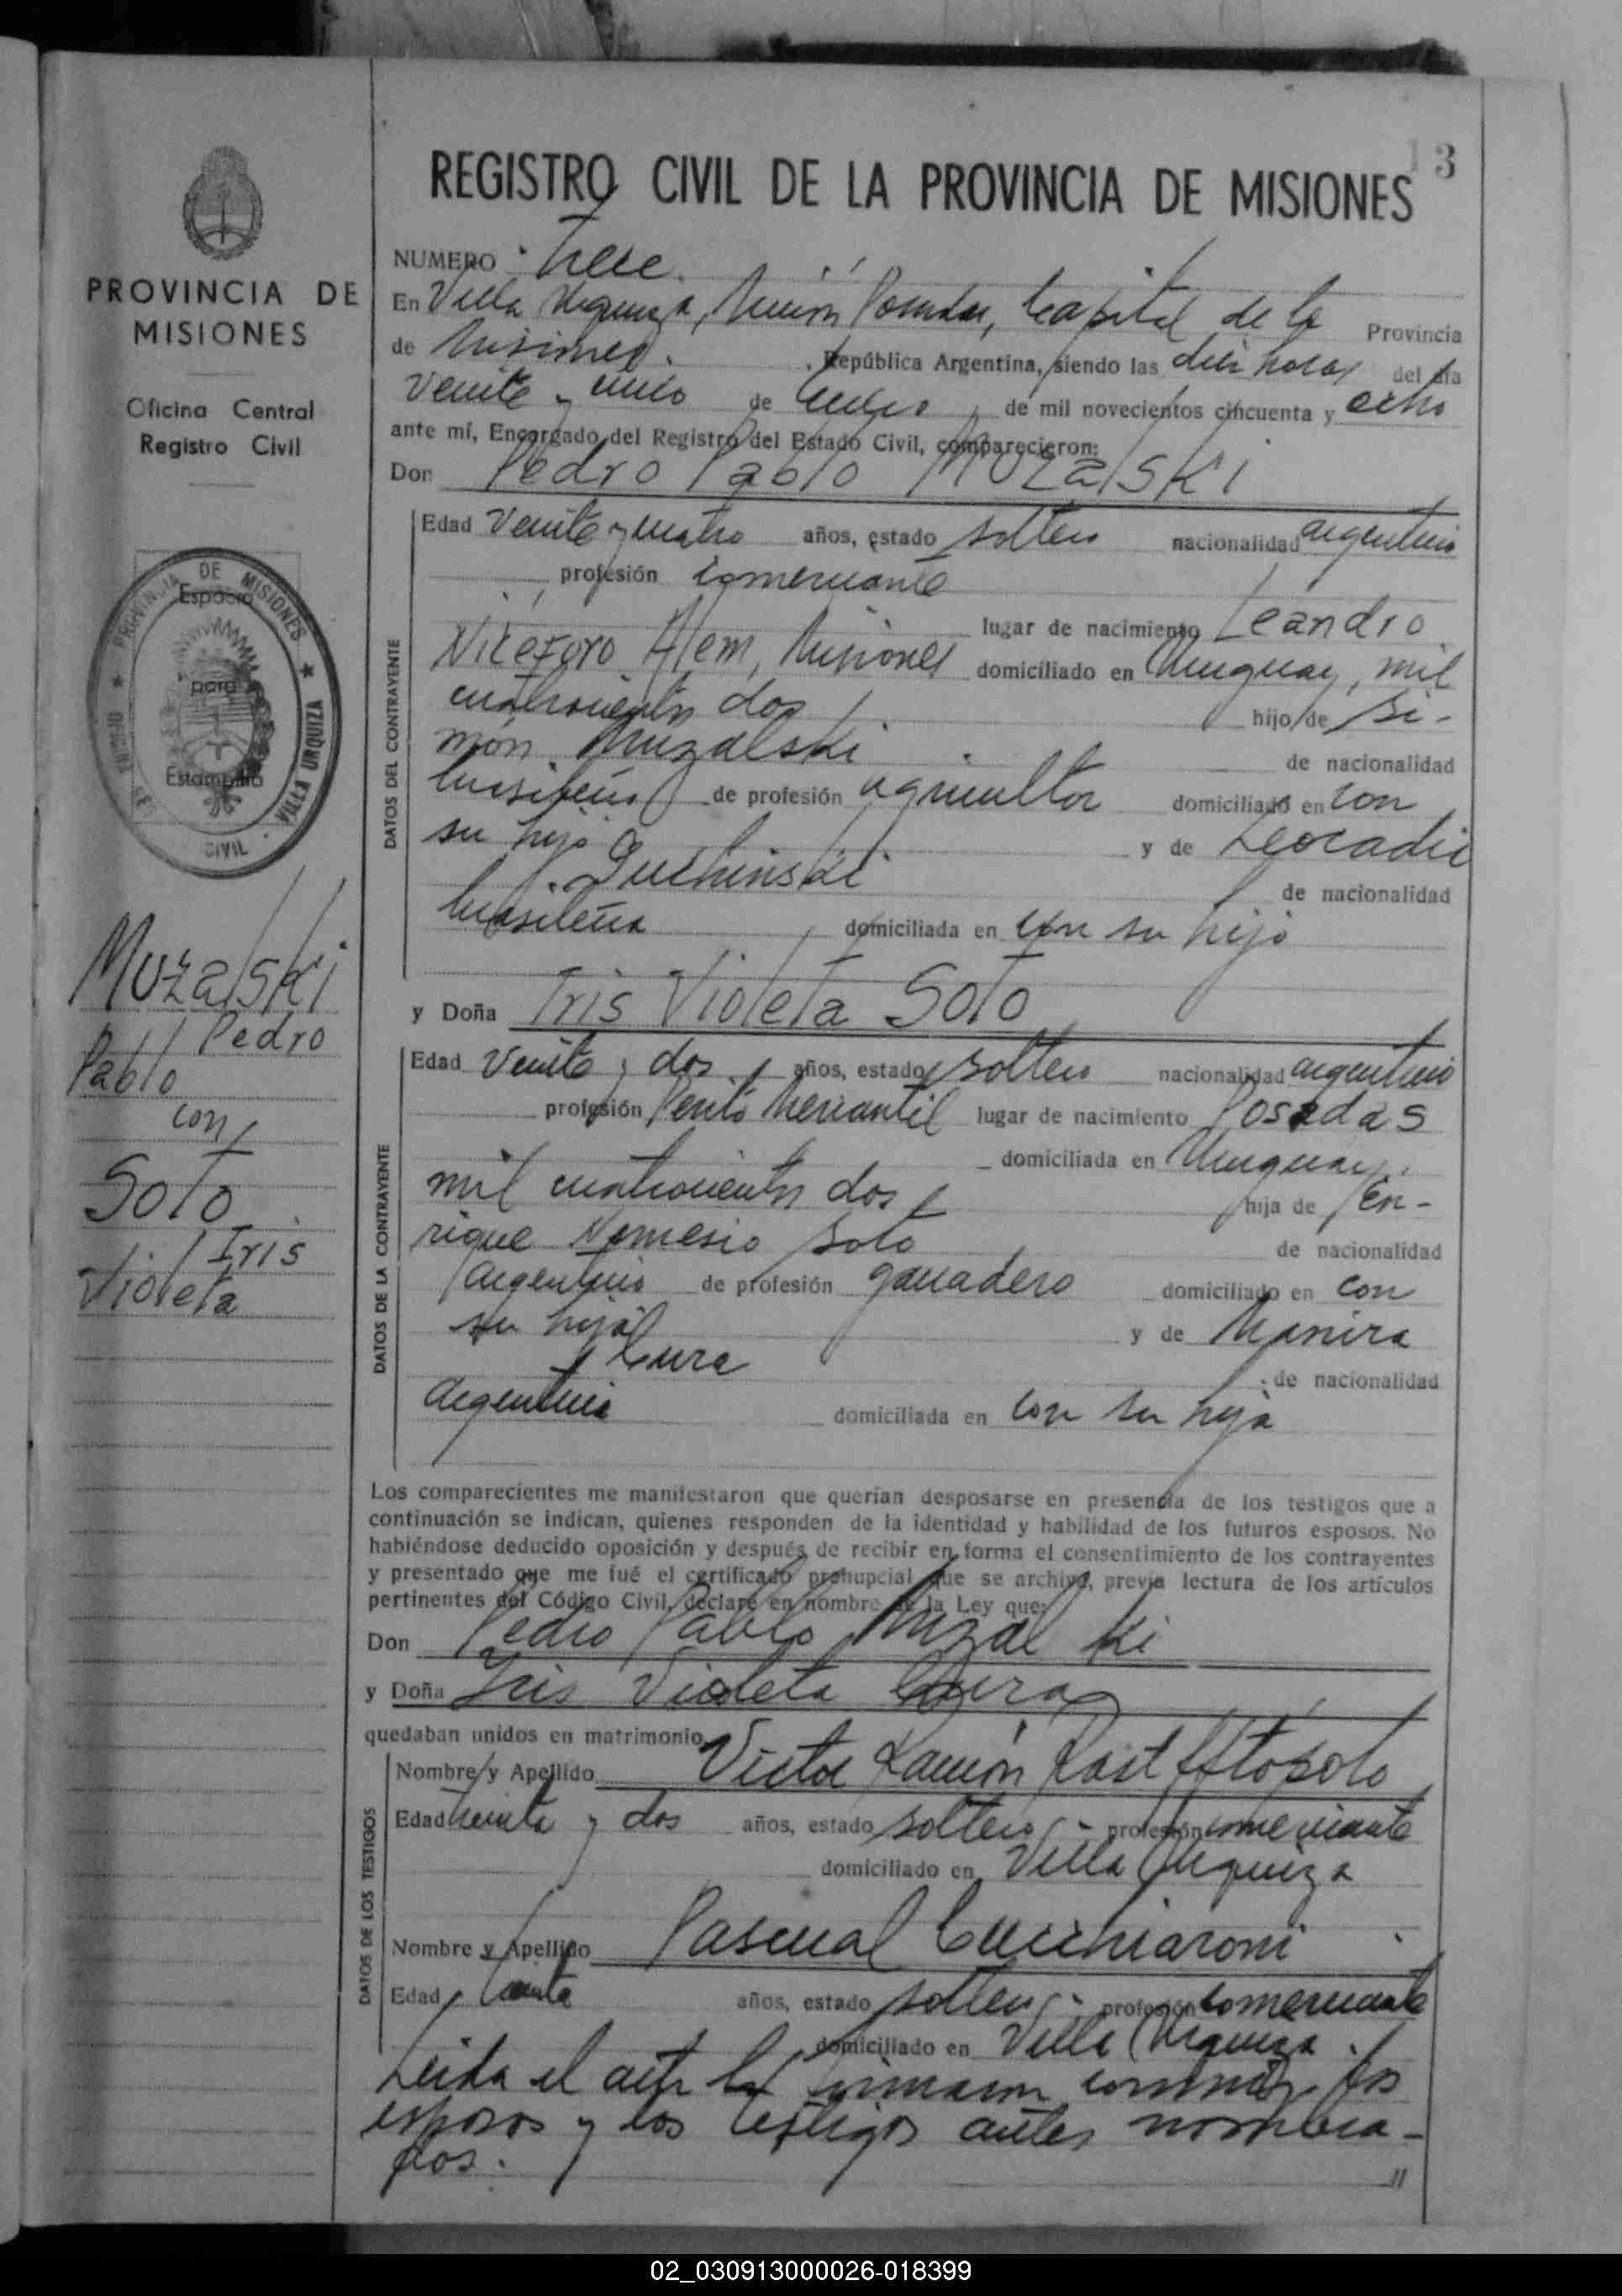 13
REGISTRO CIVIL DE LA PROVINCIA DE MISIONES
PROVINCIA DE
MISIONES
Oficina Central
Registro Civil
PROVINCIA DE MISIONES
Espacio
para
Estampilla
VILLA URQUIZA
CIVIL
Muzalski
Pedro
Pablo
con
Soto
Iris
Violeta
NUMERO trece.
En Villa Urquiza, Capital de la Provincia
de Misiones. República Argentina, siendo las diez horas del día
veinte y cinco de de mil novecientos cincuenta y ocho
ante mí, Encargado del Registro del Estado Civil, comparecieron:
Don Pedro Pablo Muzalski
DATOS DEL CONTRAYENTE
Edad Veinte y cuatro años, estado soltero nacionalidad argentino
profesión comerciante
lugar de nacimiento Leandro
Niceforo Alem, Misiones domiciliado en Uruguay, mil
cuatrocientos dos hijo de Si-
món Muzalski
de nacionalidad
brasileño de profesión agricultor domiciliado en con
su hijo y de Leocadia
de nacionalidad
brasileña domiciliada en con su hijo
y Doña Iris Violeta Soto
DATOS DE LA CONTRAYENTE
Edad Veinte y dos años, estado soltera nacionalidad argentina
profesión Perito Mercantil lugar de nacimiento Posadas
domiciliada en Uruguay,
mil cuatrocientos dos hija de En-
rique Nemesio Soto de nacionalidad
argentino de profesión ganadero domiciliado en con
su hija y de Manira
Cura
de nacionalidad
argentina domiciliada en con su hija
Los comparecientes me manifestaron que querían desposarse en presencia de los testigos que a
continuación se indican, quienes responden de la identidad y habilidad de los futuros esposos. No
habiéndose deducido oposición y después de recibir en forma el consentimiento de los contrayentes
y presentado que me fué el certificado prenupcial que se archiva, previa lectura de los artículos
pertinentes del Código Civil, declaré en nombre de la Ley que:
Don Pedro Pablo Muzalski
y Doña Iris Violeta
quedaban unidos en matrimonio
DATOS DE LOS TESTIGOS
Nombre y Apellido Victor Ramón
Edad treinta y dos años, estado soltero - profesión comerciante
domiciliado en Villa Urquiza
Nombre y Apellido Pascual Cucchiaroni
Edad treinta años, estado soltero - profesión comerciante
domiciliado en Villa Urquiza.
Leida el acta la firmaron conmigo los
esposos y los testigos antes nombra-
dos.
02_030913000026-018399